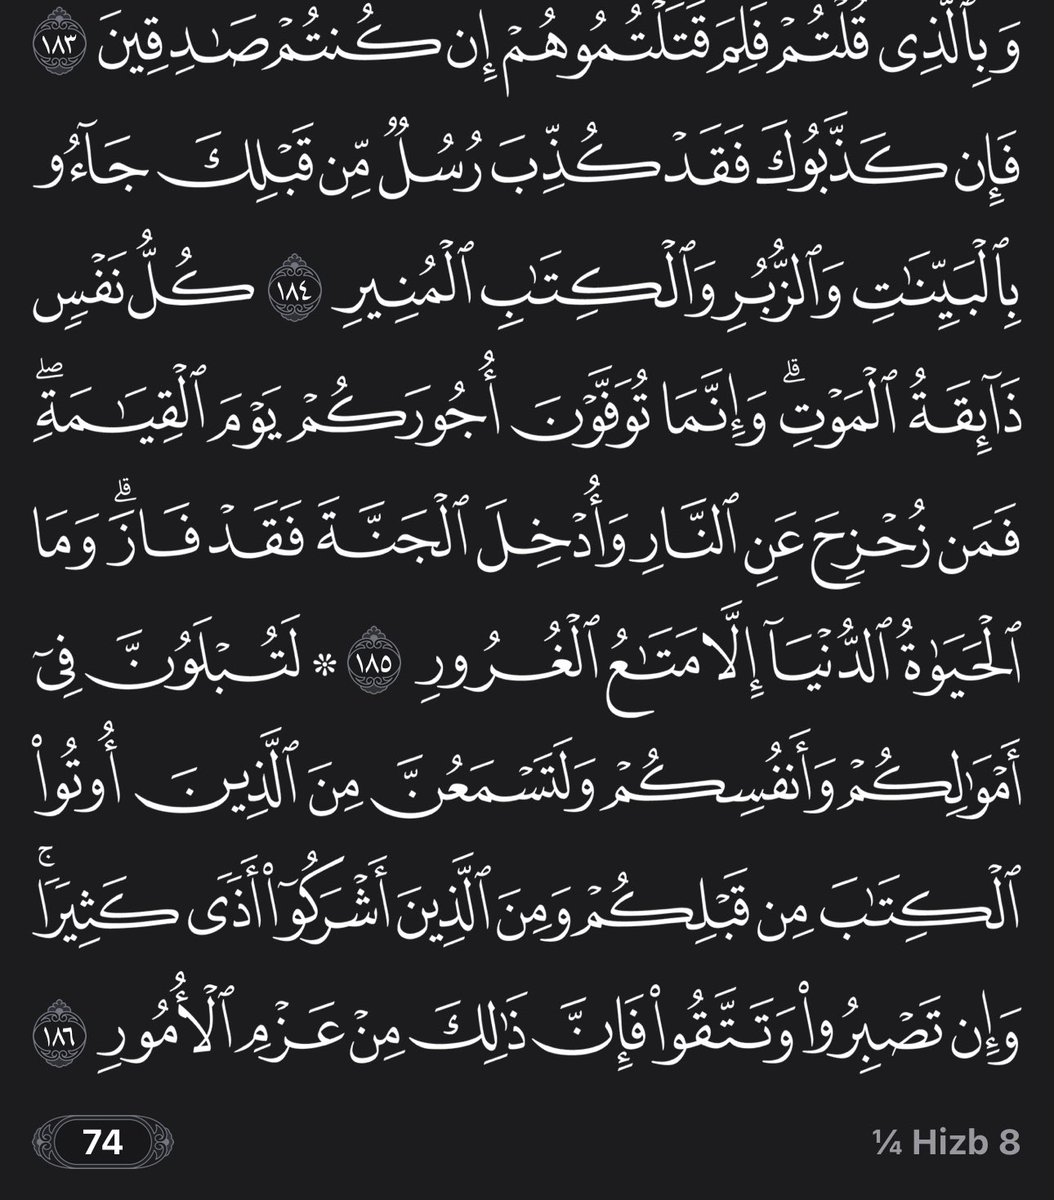 وَبِٱلَّذِى قُلْتُمْ فَلِمَ قَتَلْتُمُوهُمْ إِن كُنتُمْ صَـٰدِقِينَ ١٨٣
فَإِن كَذَّبُوكَ فَقَدْ كُذِّبَ رُسُلٌ مِّن قَبْلِكَ جَآءُو
بِٱلْبَيِّنَـٰتِ وَٱلزُّبُرِ وَٱلْكِتَـٰبِ ٱلْمُنِيرِ ١٨٤ كُلُّ نَفْسٍ
ذَآئِقَةُ ٱلْمَوْتِ ۗ وَإِنَّمَا تُوَفَّوْنَ أُجُورَكُمْ يَوْمَ ٱلْقِيَـٰمَةِ ۖ
فَمَن زُحْزِحَ عَنِ ٱلنَّارِ وَأُدْخِلَ ٱلْجَنَّةَ فَقَدْ فَازَ ۗ وَمَا
ٱلْحَيَوٰةُ ٱلدُّنْيَآ إِلَّا مَتَـٰعُ ٱلْغُرُورِ ١٨٥ * لَتُبْلَوُنَّ فِىٓ
أَمْوَٰلِكُمْ وَأَنفُسِكُمْ وَلَتَسْمَعُنَّ مِنَ ٱلَّذِينَ أُوتُوا۟
ٱلْكِتَـٰبَ مِن قَبْلِكُمْ وَمِنَ ٱلَّذِينَ أَشْرَكُوٓا۟ أَذًى كَثِيرًا ۚ
وَإِن تَصْبِرُوا۟ وَتَتَّقُوا۟ فَإِنَّ ذَٰلِكَ مِنْ عَزْمِ ٱلْأُمُورِ ١٨٦
74 ¼ Hizb 8